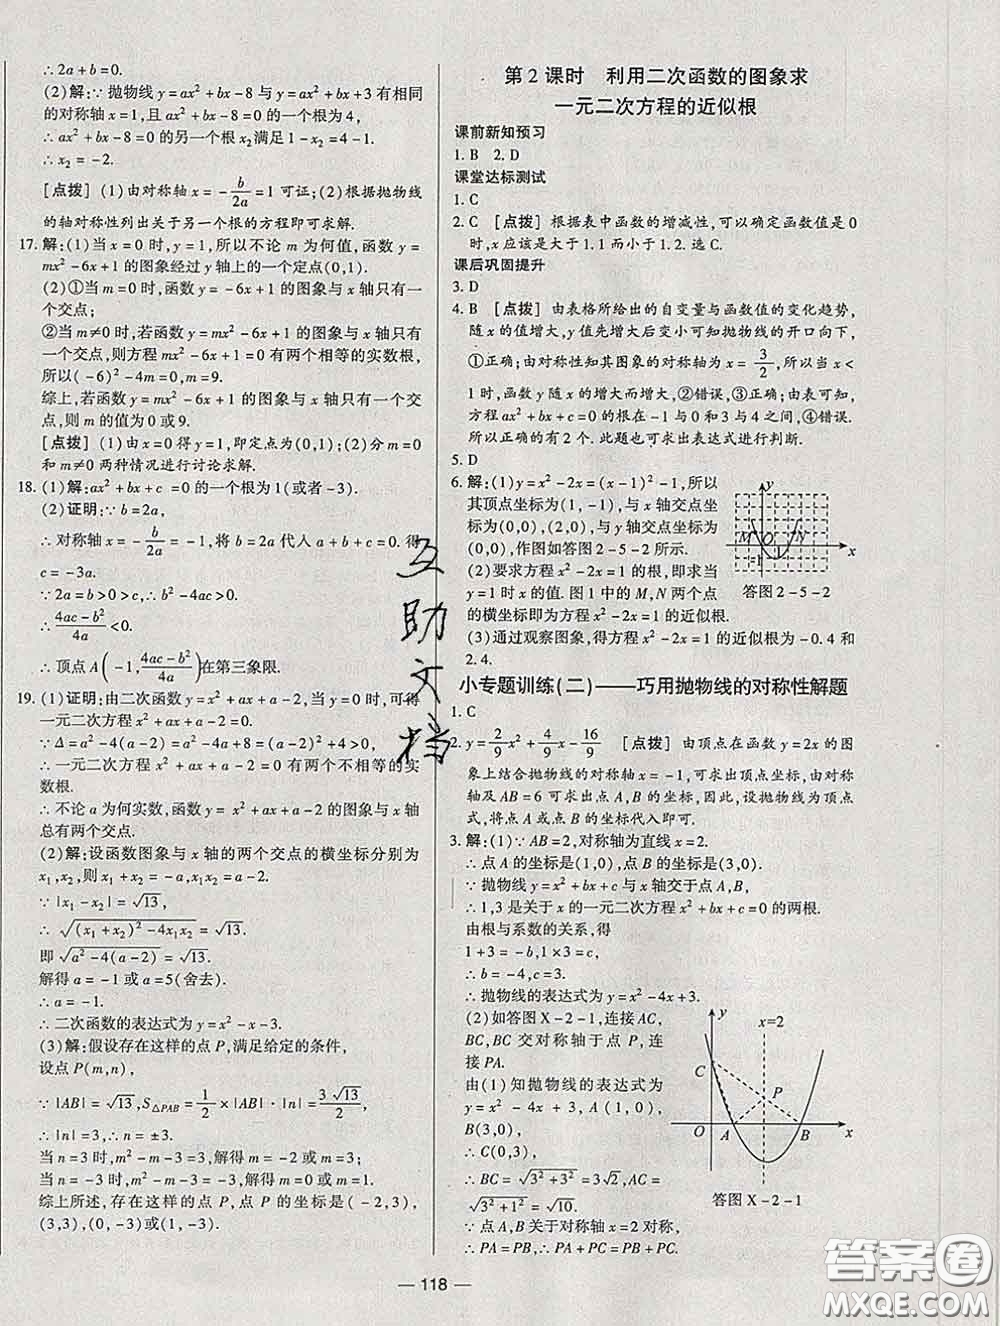 ∴2a+b=0.
(2)解:∵抛物线y=ax²+bx-8与y=ax²+bx+3有相同
的对称轴x=1,且ax²+bx-8=0的一个根为4,
∴ax²+bx-8=0的另一个根x₂满足4-1=1-x₂.
∴x₂=-2.
[点拨] (1)由对称轴x=-b/2a=1可证;(2)根据抛物线
的轴对称性列出关于另一个根的方程即可求解.
17.解:(1)当x=0时,y=1,所以不论m为何值,函数y=
mx²-6x+1的图象经过y轴上的一个定点(0,1).
(2)①当m=0时,函数y=-6x+1的图象与x轴只有一
个交点;
②当m≠0时,若函数y=mx²-6x+1的图象与x轴只有
一个交点,则方程mx²-6x+1=0有两个相等的实数根,
所以(-6)²-4m=0,m=9.
综上,若函数y=mx²-6x+1的图象与x轴只有一个交
点,则m的值为0或9.
[点拨] (1)由x=0得y=1,即定点为(0,1);(2)分m=0
和m≠0两种情况进行讨论求解.
18.(1)解:ax²+bx+c=0的一个根为1(或者-3).
(2)证明:∵b=2a,
∴对称轴x=-b/2a=-1,将b=2a代入a+b+c=0.得
c=-3a.
∵b=2a>0>c,∴b²-4ac>0.
∴(4ac-b²)/4a<0.
∴顶点A(-1,(4ac-b²)/4a)在第三象限.
19.(1)证明:由二次函数y=x²+ax+a-2,当y=0时,可得
一元二次方程x²+ax+a-2=0.
∵Δ=a²-4(a-2)=a²-4a+8=(a-2)²+4>0,
∴一元二次方程x²+ax+a-2=0有两个不相等的实
数根.
∴不论a为何实数,函数y=x²+ax+a-2的图象与x轴
总有两个交点.
(2)解:设函数图象与x轴的两个交点的横坐标分别为
x₁,x₂,则x₁+x₂=-a,x₁x₂=a-2.
∵|x₁-x₂|=√13,
∴√((x₁+x₂)²-4x₁x₂)=√13.
即√(a²-4(a-2))=√13.
解得a=-1或a=5(舍去).
∴a=-1.
∴二次函数的表达式为y=x²-x-3.
(3)解:假设存在这样的点P,满足给定的条件,
设点P(m,n),
∵|AB|=√13,S△PAB=1/2×|AB|·|n|=3√13/2,
∴|n|=3,∴n=±3.
当n=3时,m²-m-3=3,解得m=-2或m=3;
当n=-3时,m²-m-3=-3,解得m=0或m=1.
综上所述,存在这样的点P,点P的坐标是(-2,3),
(3,3),(0,-3)或(1,-3).
第2课时 利用二次函数的图象求
一元二次方程的近似根
课前新知预习
1.B 2.D
课堂达标测试
1.C
2.C [点拨] 根据表中函数的增减性,可以确定函数值是0
时,x应该是大于1.1而小于1.2.选C.
课后巩固提升
3.D
4.B [点拨] 由表格所给出的自变量与函数值的变化趋势,
随x的值增大,y值先增大后变小可知抛物线的开口向下,
①正确;由对称性知其图象的对称轴为x=3/2,所以当x<
1时,函数y随x的增大而增大,②错误,③正确;由表可知,
方程ax²+bx+c=0的根在-1与0和3与4之间,④错误.
所以正确的有2个.此题也可求出表达式进行判断.
5.D
6.解:(1)y=x²-2x=(x-1)²-1,所以
其顶点坐标为(1,-1),与x轴交点坐
标为(0,0),(2,0),与y轴交点坐标为
(0,0),作图如答图2-5-2所示.
(2)要求方程x²-2x=1的根,即求当
y=1时x的值.图1中的M,N两个点
的横坐标即为方程x²-2x=1的近似根.
(3)通过观察图象,得方程x²-2x=1的近似根为-0.4和
2.4.
y
M O N
-1 1
x
答图2-5-2
小专题训练(二)——巧用抛物线的对称性解题
1.C
2.y=2/9x²+4/9x-16/9 [点拨] 由顶点在函数y=2x的图
象上结合抛物线的对称轴x=-1,可求出顶点坐标,由对称
轴及AB=6可求出点A,B的坐标,因此,设抛物线为顶点
式,将点A或点B的坐标代入即可.
3.解:(1)∵AB=2,对称轴为直线x=2.
∴点A的坐标是(1,0),点B的坐标是(3,0).
∵抛物线y=x²+bx+c与x轴交于点A,B,
∴1,3是关于x的一元二次方程x²+bx+c=0的两根.
由根与系数的关系,得
1+3=-b,1×3=c,
∴b=-4,c=3.
∴抛物线的表达式为y=x²-4x+3.
(2)如答图X-2-1,连接AC,
BC,BC交对称轴于点P,连
接PA.
由(1)知抛物线的表达式为
y=x²-4x+3,A(1,0),
B(3,0),
∴C(0,3),
∴BC=√(3²+3²)=3√2,AC
=√(3²+1²)=√10.
∵点A,B关于对称轴x=2对称,
∴PA=PB,∴PA+PC=PB+PC.
y x=2
C
P
O A B x
答图X-2-1
互助文档
— 118 —
答案圈
MXQE.COM